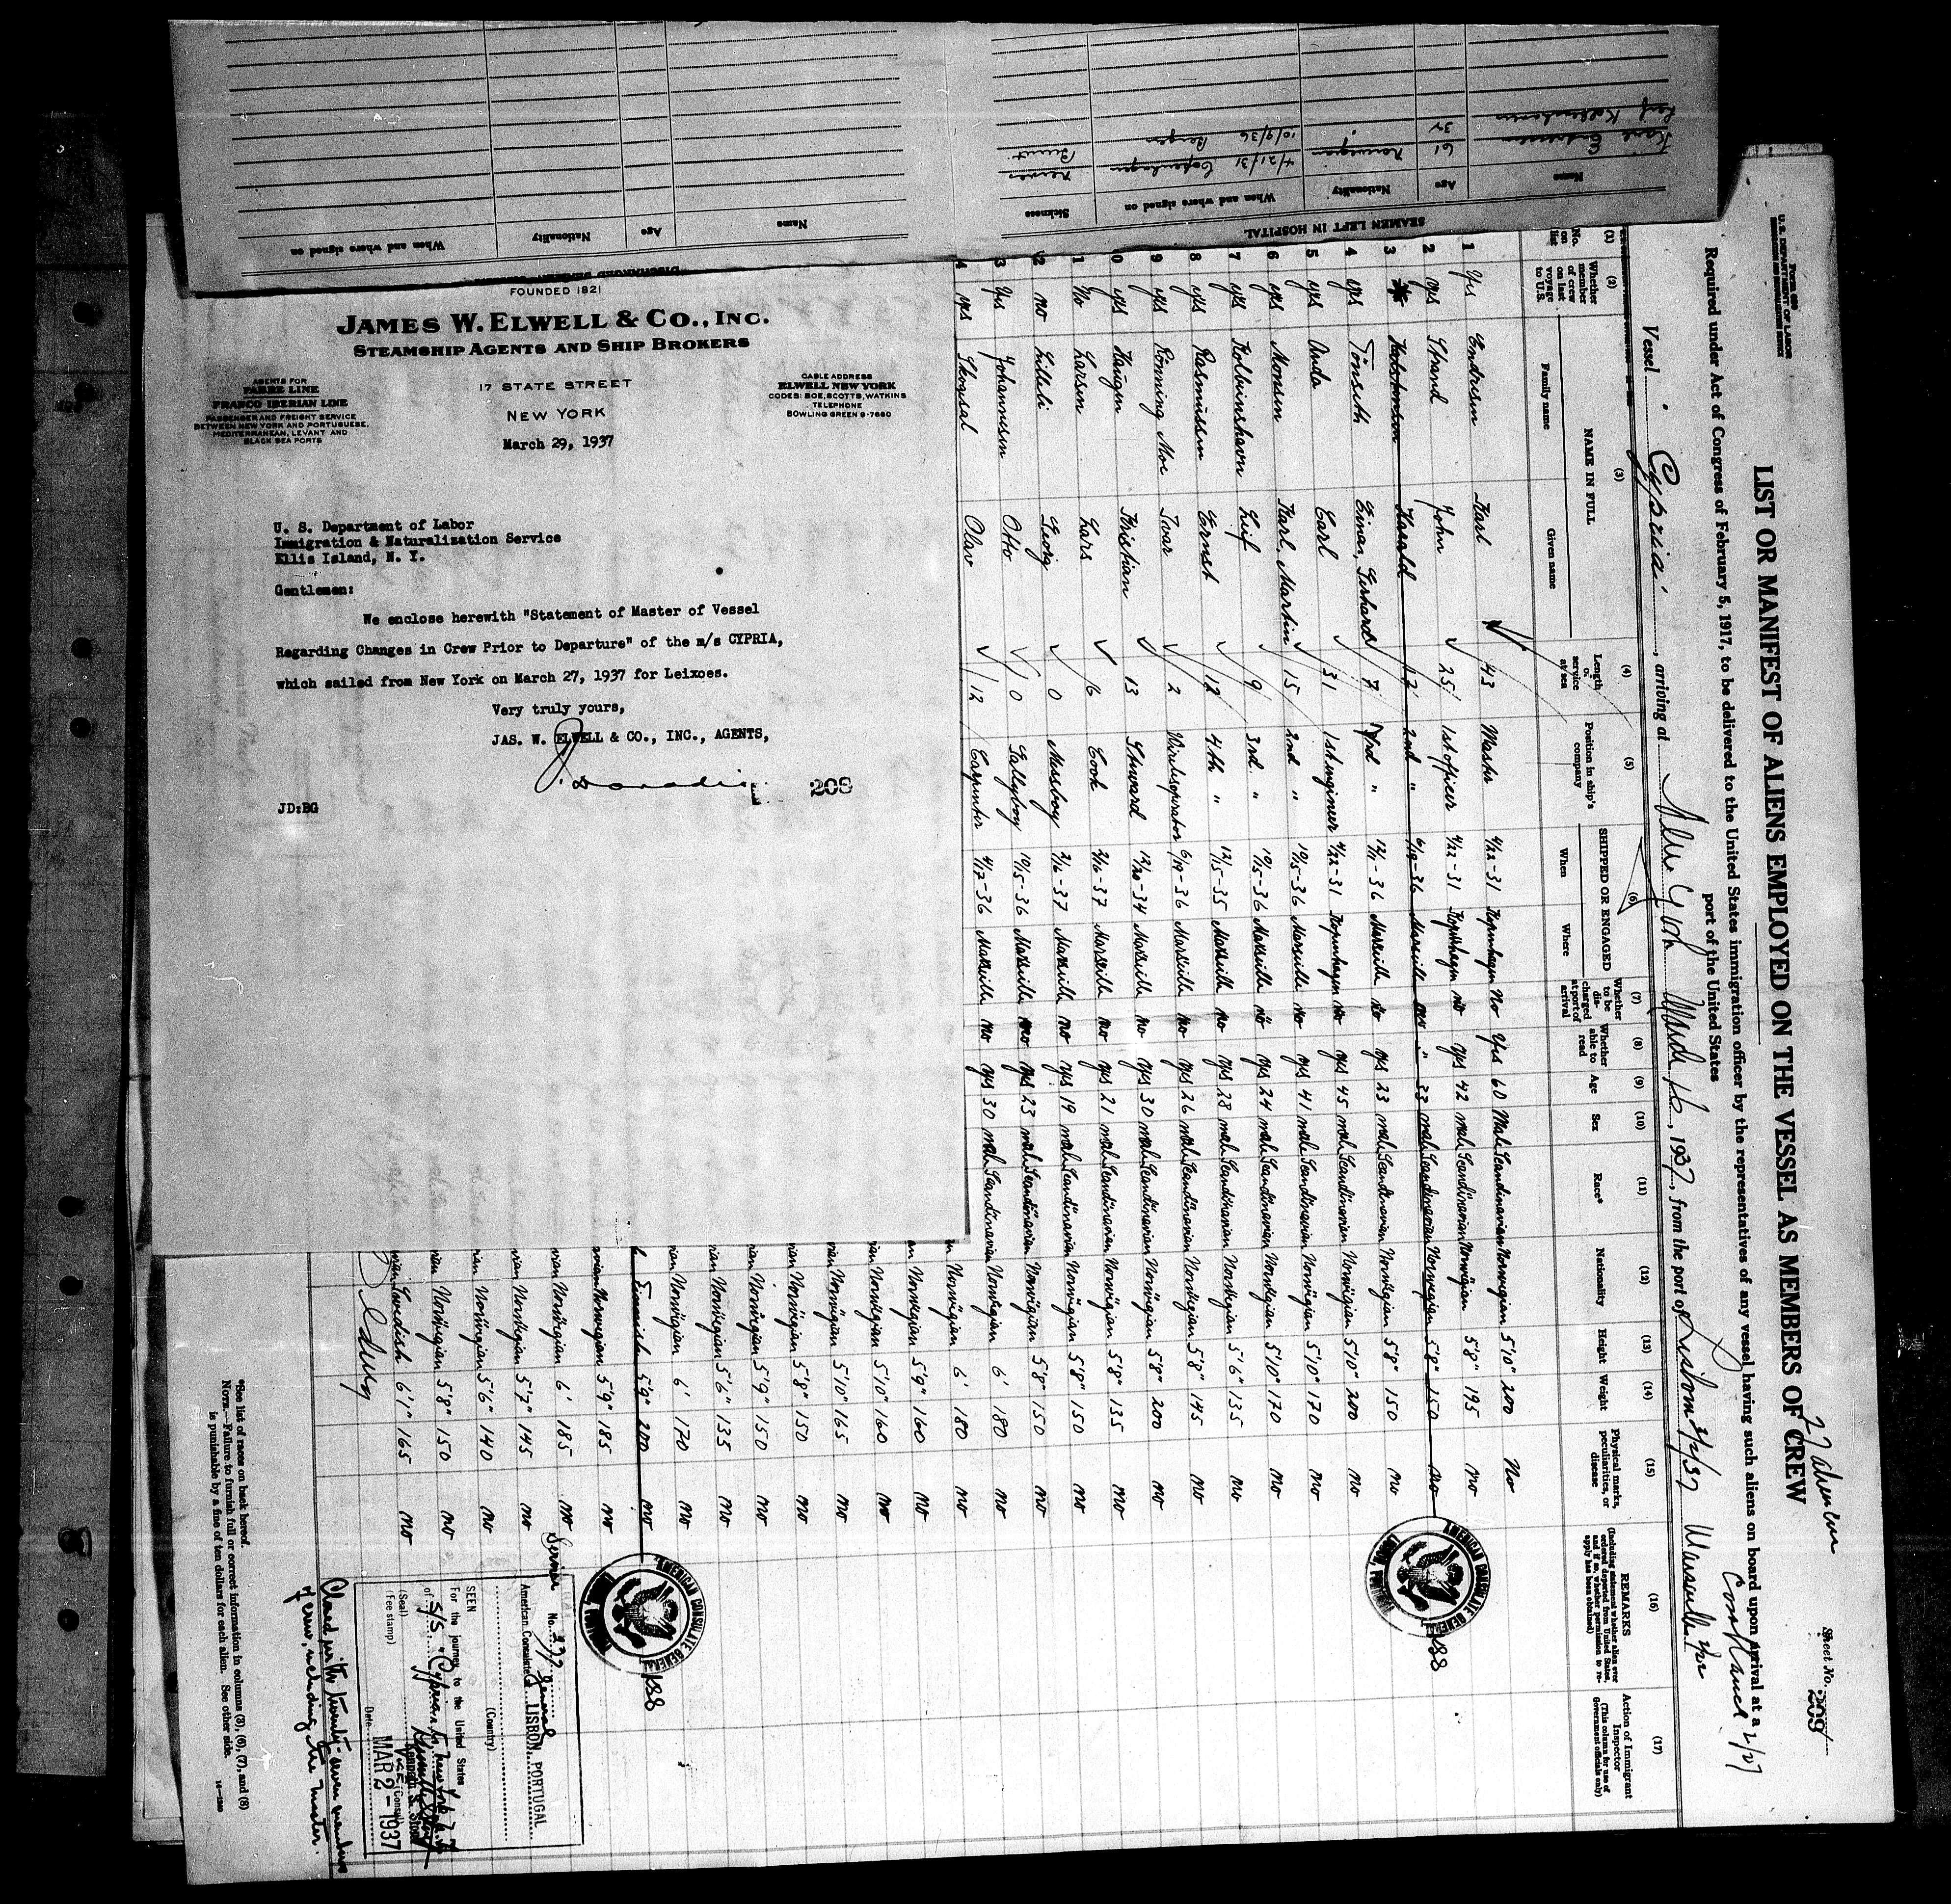 FOUNDED 1821
JAMES W. ELWELL & CO., INC.
STEAMSHIP AGENTS AND SHIP BROKERS
AGENTS FOR
FABRE LINE
FRANCO IBERIAN LINE
PASSENGER AND FREIGHT SERVICE
BETWEEN NEW YORK AND PORTUGUESE,
MEDITERRANEAN, LEVANT AND
BLACK SEA PORTS
17 STATE STREET
NEW YORK
March 29, 1937
CABLE ADDRESS
ELWELL NEW YORK
CODES: BOE, SCOTTS, WATKINS
TELEPHONE
BOWLING GREEN 9-7680
U. S. Department of Labor
Immigration & Naturalization Service
Ellis Island, N. Y.
Gentlemen:
We enclose herewith "Statement of Master of Vessel
Regarding Changes in Crew Prior to Departure" of the m/s CYPRIA,
which sailed from New York on March 27, 1937 for Leixoes.
Very truly yours,
JAS. W. ELWELL & CO., INC., AGENTS,
209
JD:BG
SEAMEN LEFT IN HOSPITAL
Name Age Nationality When and where signed on Sickness
61 Norwegian 4/21/31 Copenhagen
10/9/36 Bergen
Name Age Nationality When and where signed on
U.S. DEPARTMENT OF LABOR
Sheet No.
209
LIST OR MANIFEST OF ALIENS EMPLOYED ON THE VESSEL AS MEMBERS OF CREW
Required under Act of Congress of February 5, 1917, to be delivered to the United States immigration officer by the representatives of any vessel having such aliens on board upon arrival at a
port of the United States
Vessel Cypria, arriving at New York March 16, 1937, from the port of Lisbon 3/2/37 Marseille
(1) (2) (3) (4) (5) (6) (7) (8) (9) (10) (11) (12) (13) (14) (15) (16) (17)
No. on list
Whether member of crew on last voyage to U.S.
NAME IN FULL
Family name
Given name
Length of service at sea
Position in ship's company
SHIPPED OR ENGAGED
When
Where
Whether to be discharged at port of arrival
Whether able to read
Age
Sex
Race*
Nationality
Height
Weight
Physical marks, peculiarities, or disease
REMARKS
(Including statement whether alien ever ordered deported from United States, and if so, whether permission to reapply has been obtained)
Action of Immigrant Inspector
(This column for use of Government officials only)
1 Yes Endresen Karl 43 Master 4/22-31 Kopenhagen No Yes 60 Male Scandinavian Norwegian 5'10" 200 No
2 yes Strand John 25 1st officer 4/22-31 Kopenhagen no yes 42 male Scandinavian Norwegian 5'8" 195 no
3 Harald 2 2nd " 6/19-36 Marseille 33 male Scandinavian Norwegian 5'8" 150 no
4 yes Tönseth Einar, Gerhard 7 3rd " 12/11-36 Marseille no yes 23 male Scandinavian Norwegian 5'8" 150 no
5 yes Anda Carl 31 1st engineer 4/22-31 Kopenhagen no yes 45 male Scandinavian Norwegian 5'10" 200 no
6 yes Monsen Karl, Martin 15 2nd " 10/15-36 Marseille no yes 41 male Scandinavian Norwegian 5'10" 170 no
7 yes Kolbenshavn Leif 9 3rd " 10/15-36 Marseille no yes 24 male Scandinavian Norwegian 5'10" 170 no
8 yes Rasmussen Ernst 12 4th " 12/15-35 Marseille no yes 28 male Scandinavian Norwegian 5'6" 135 no
9 yes Rönning Moe Ivar 2 Wirelessoperator 6/19-36 Marseille no yes 26 male Scandinavian Norwegian 5'8" 145 no
10 yes Haugen Kristian 13 Steward 12/20-34 Marseille no yes 30 male Scandinavian Norwegian 5'8" 200 no
11 No Larsen Lars 6 Cook 2/16-37 Marseille no yes 21 male Scandinavian Norwegian 5'8" 135 no
12 no Lilleli Georg 0 Messboy 2/16-37 Marseille no yes 19 male Scandinavian Norwegian 5'8" 150 no
13 Yes Johannesen Otto 0 Galleyboy 10/15-36 Marseille no yes 23 male Scandinavian Norwegian 5'8" 150 no
14 yes Skogsal Olav 12 Carpenter 4/17-36 Marseille no yes 30 male Scandinavian Norwegian 6' 180 no
Norwegian 6' 180 no
Norwegian 5'9" 160 no
Norwegian 5'10" 160 no
Norwegian 5'10" 165 no
Norwegian 5'8" 150 no
Norwegian 5'9" 150 no
Norwegian 5'6" 135 no
Norwegian 6' 170 no
5'9" 200 no
Norwegian 5'9" 185 no
Norwegian 6' 185 no
Norwegian 5'7" 145 no
Norwegian 5'6" 140 no
Norwegian 5'8" 150 no
Swedish 6'1" 165 no
AMERICAN CONSULATE GENERAL
LISBON, PORTUGAL
AMERICAN CONSULATE GENERAL
LISBON, PORTUGAL
Service No. 237
American Consulate General LISBON, PORTUGAL
(Country)
SEEN
For the journey to the United States
of S/S. "Cypria" to New York
(Seal)
(Fee stamp)
Vice Consul
Date MAR 2 - 1937
Closed with twenty-seven members
of crew, including the master.
*See list of races on back hereof.
NOTE.—Failure to furnish full or correct information in columns (3), (6), (7), and (8)
is punishable by a fine of ten dollars for each alien. See other side.